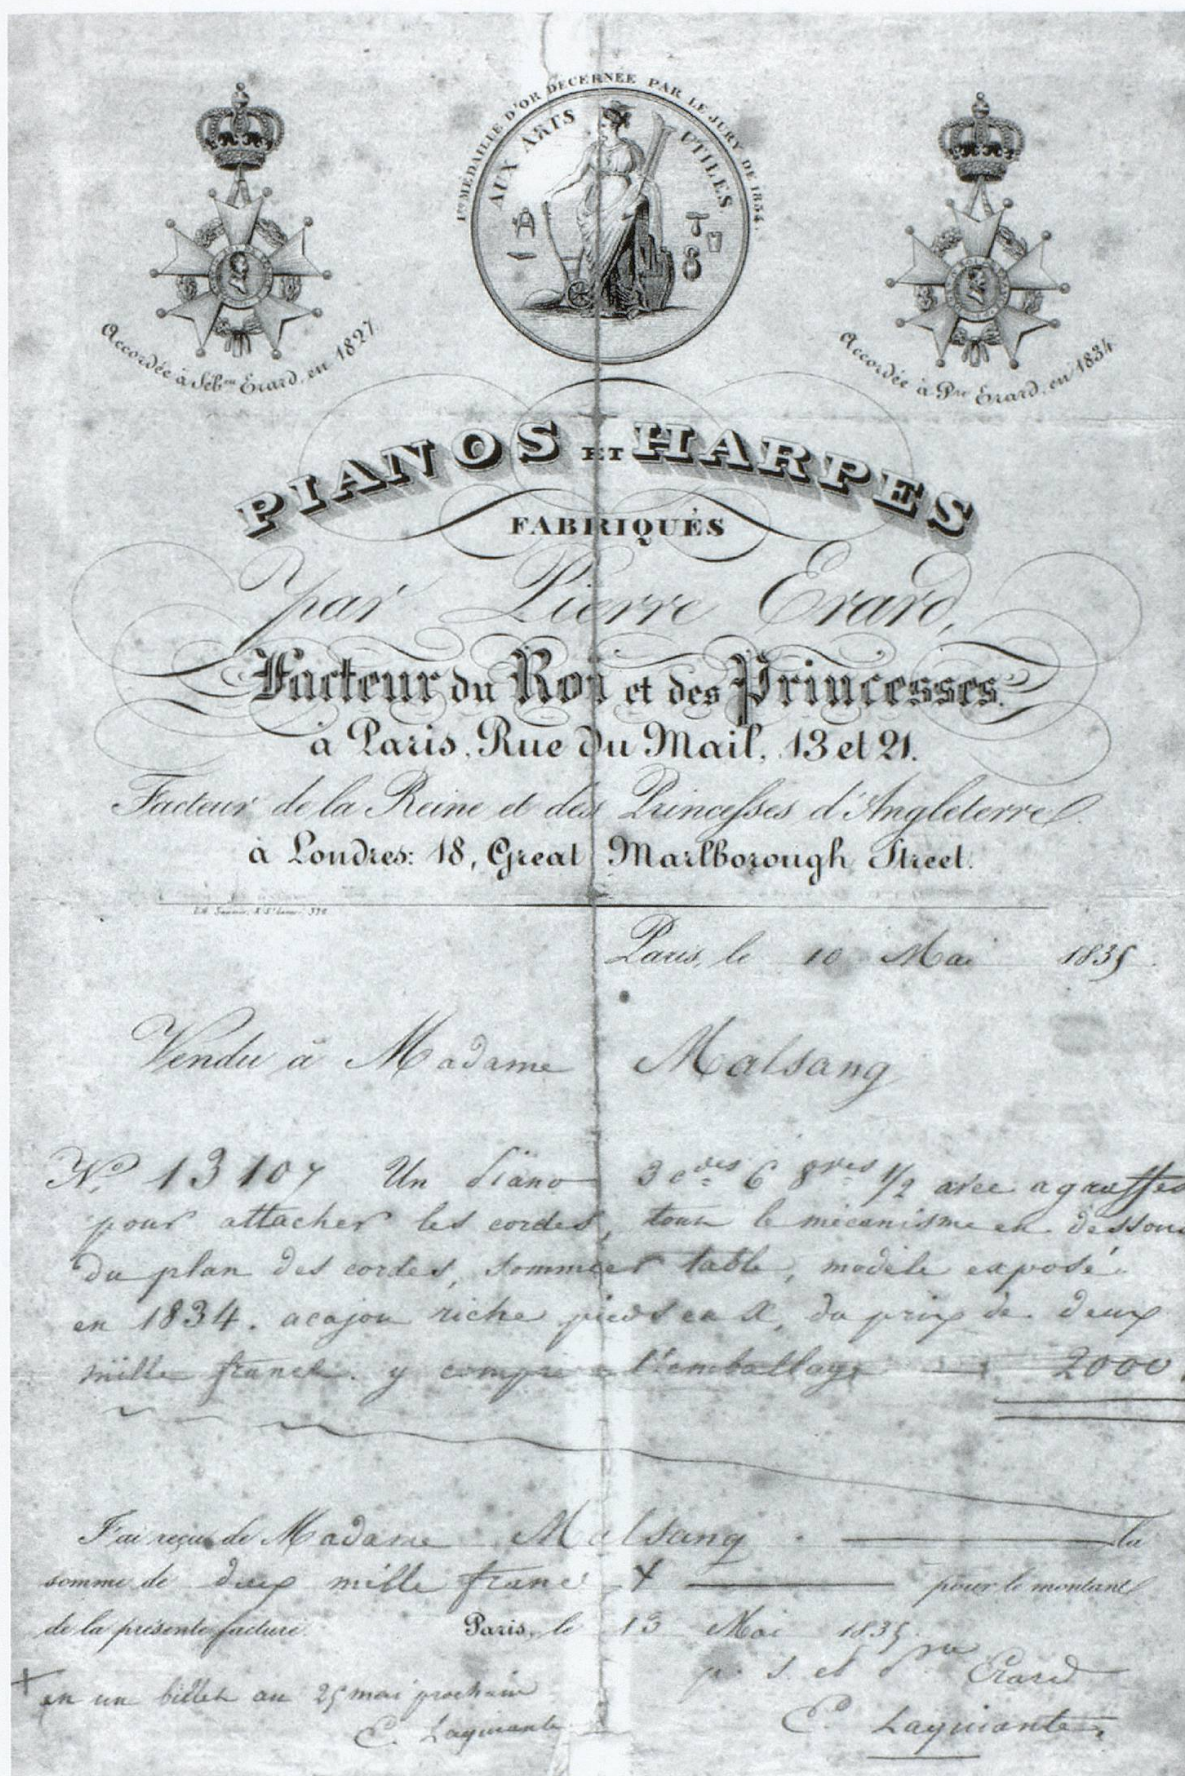 1re MÉDAILLE D'OR DÉCERNÉE PAR LE JURY DE 1834.
AUX ARTS UTILES
Accordée à Sébien Erard, en 1827.
Accordée à Pre Erard, en 1834
PIANOS ET HARPES
FABRIQUÉS
par Pierre Erard,
Facteur du Roi et des Princesses.
à Paris, Rue du Mail, 13 et 21.
Facteur de la Reine et des Princesses d'Angleterre
à Londres: 18, Great Marlborough Street.
Paris, le 10 Mai 1835
Vendu à Madame Malsang
No. 13107 Un Piano 3 cdes 6 8ves 1/2 avec agraffes
pour attacher les cordes, tout le mécanisme en dessous
du plan des cordes, sommier table, modèle exposé
en 1834. acajou riche pieds en X, du prix de deux
mille francs. y compris l'emballage 2000
J'ai reçu de Madame Malsang la
somme de deux mille francs X pour le montant
de la présente facture. Paris, le 13 Mai 1835
p. S. et Pre Erard
X en un billet au 25 mai prochain
E. Laquiante
E. Laquiante